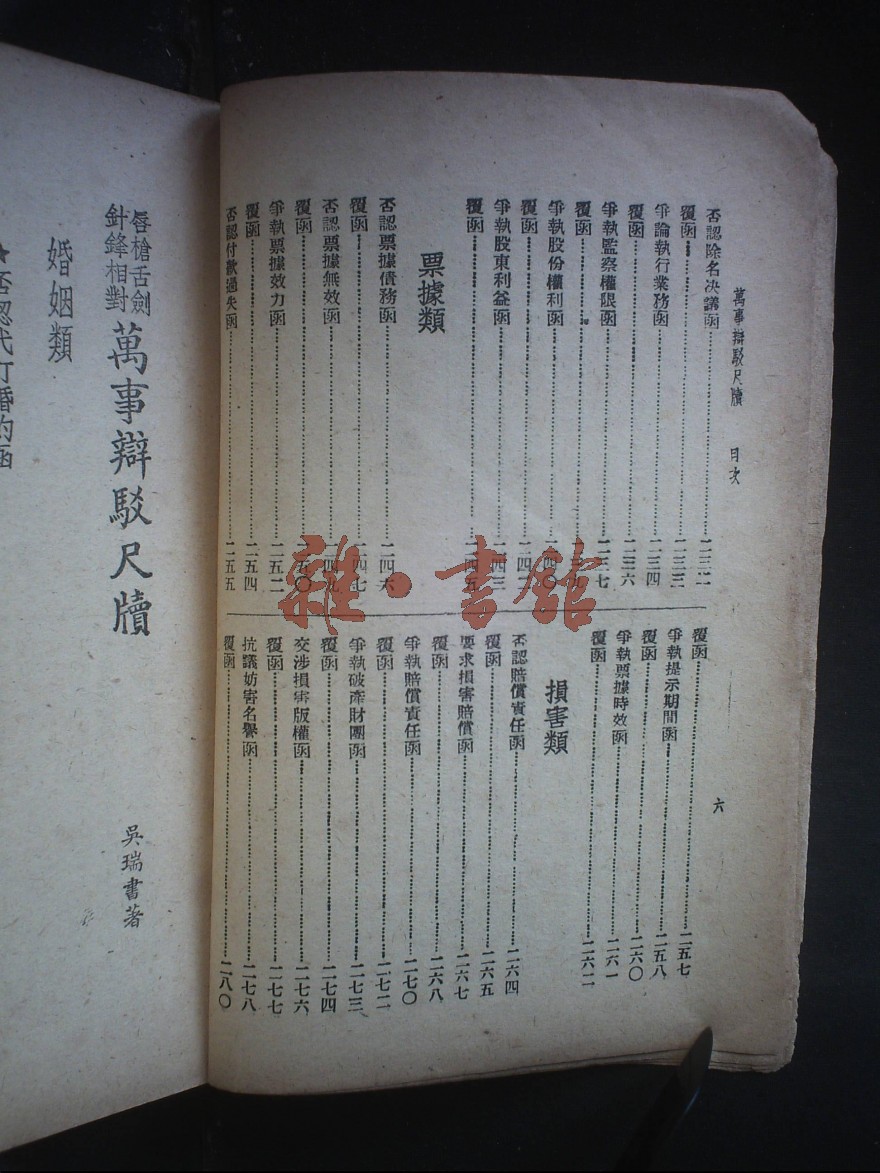 萬事辯駁尺牘　目次
六
否認除名決議函……二三二
覆函……二三三
爭論執行業務函……二三四
覆函……二三六
爭執監察權限函……二三七
覆函……二三九
爭執股份權利函……二四〇
覆函……二四二
爭執股東利益函……二四三
覆函……二四五
票據類
否認票據債務函……二四六
覆函……二四七
否認票據無效函……二四九
覆函……二五〇
爭執票據效力函……二五二
覆函……二五四
否認付款過失函……二五五
覆函……二五七
爭執提示期間函……二五八
覆函……二六〇
爭執票據時效函……二六一
覆函……二六二
損害類
否認賠償責任函……二六四
覆函……二六五
要求損害賠償函……二六七
覆函……二六八
爭執賠償責任函……二七〇
覆函……二七二
爭執破產財團函……二七三
覆函……二七四
交涉損害版權函……二七六
覆函……二七七
抗議妨害名譽函……二七八
覆函……二八〇
唇槍舌劍
針鋒相對
萬事辯駁尺牘
吳瑞書著
婚姻類
★否認代訂婚約函
雜·書館